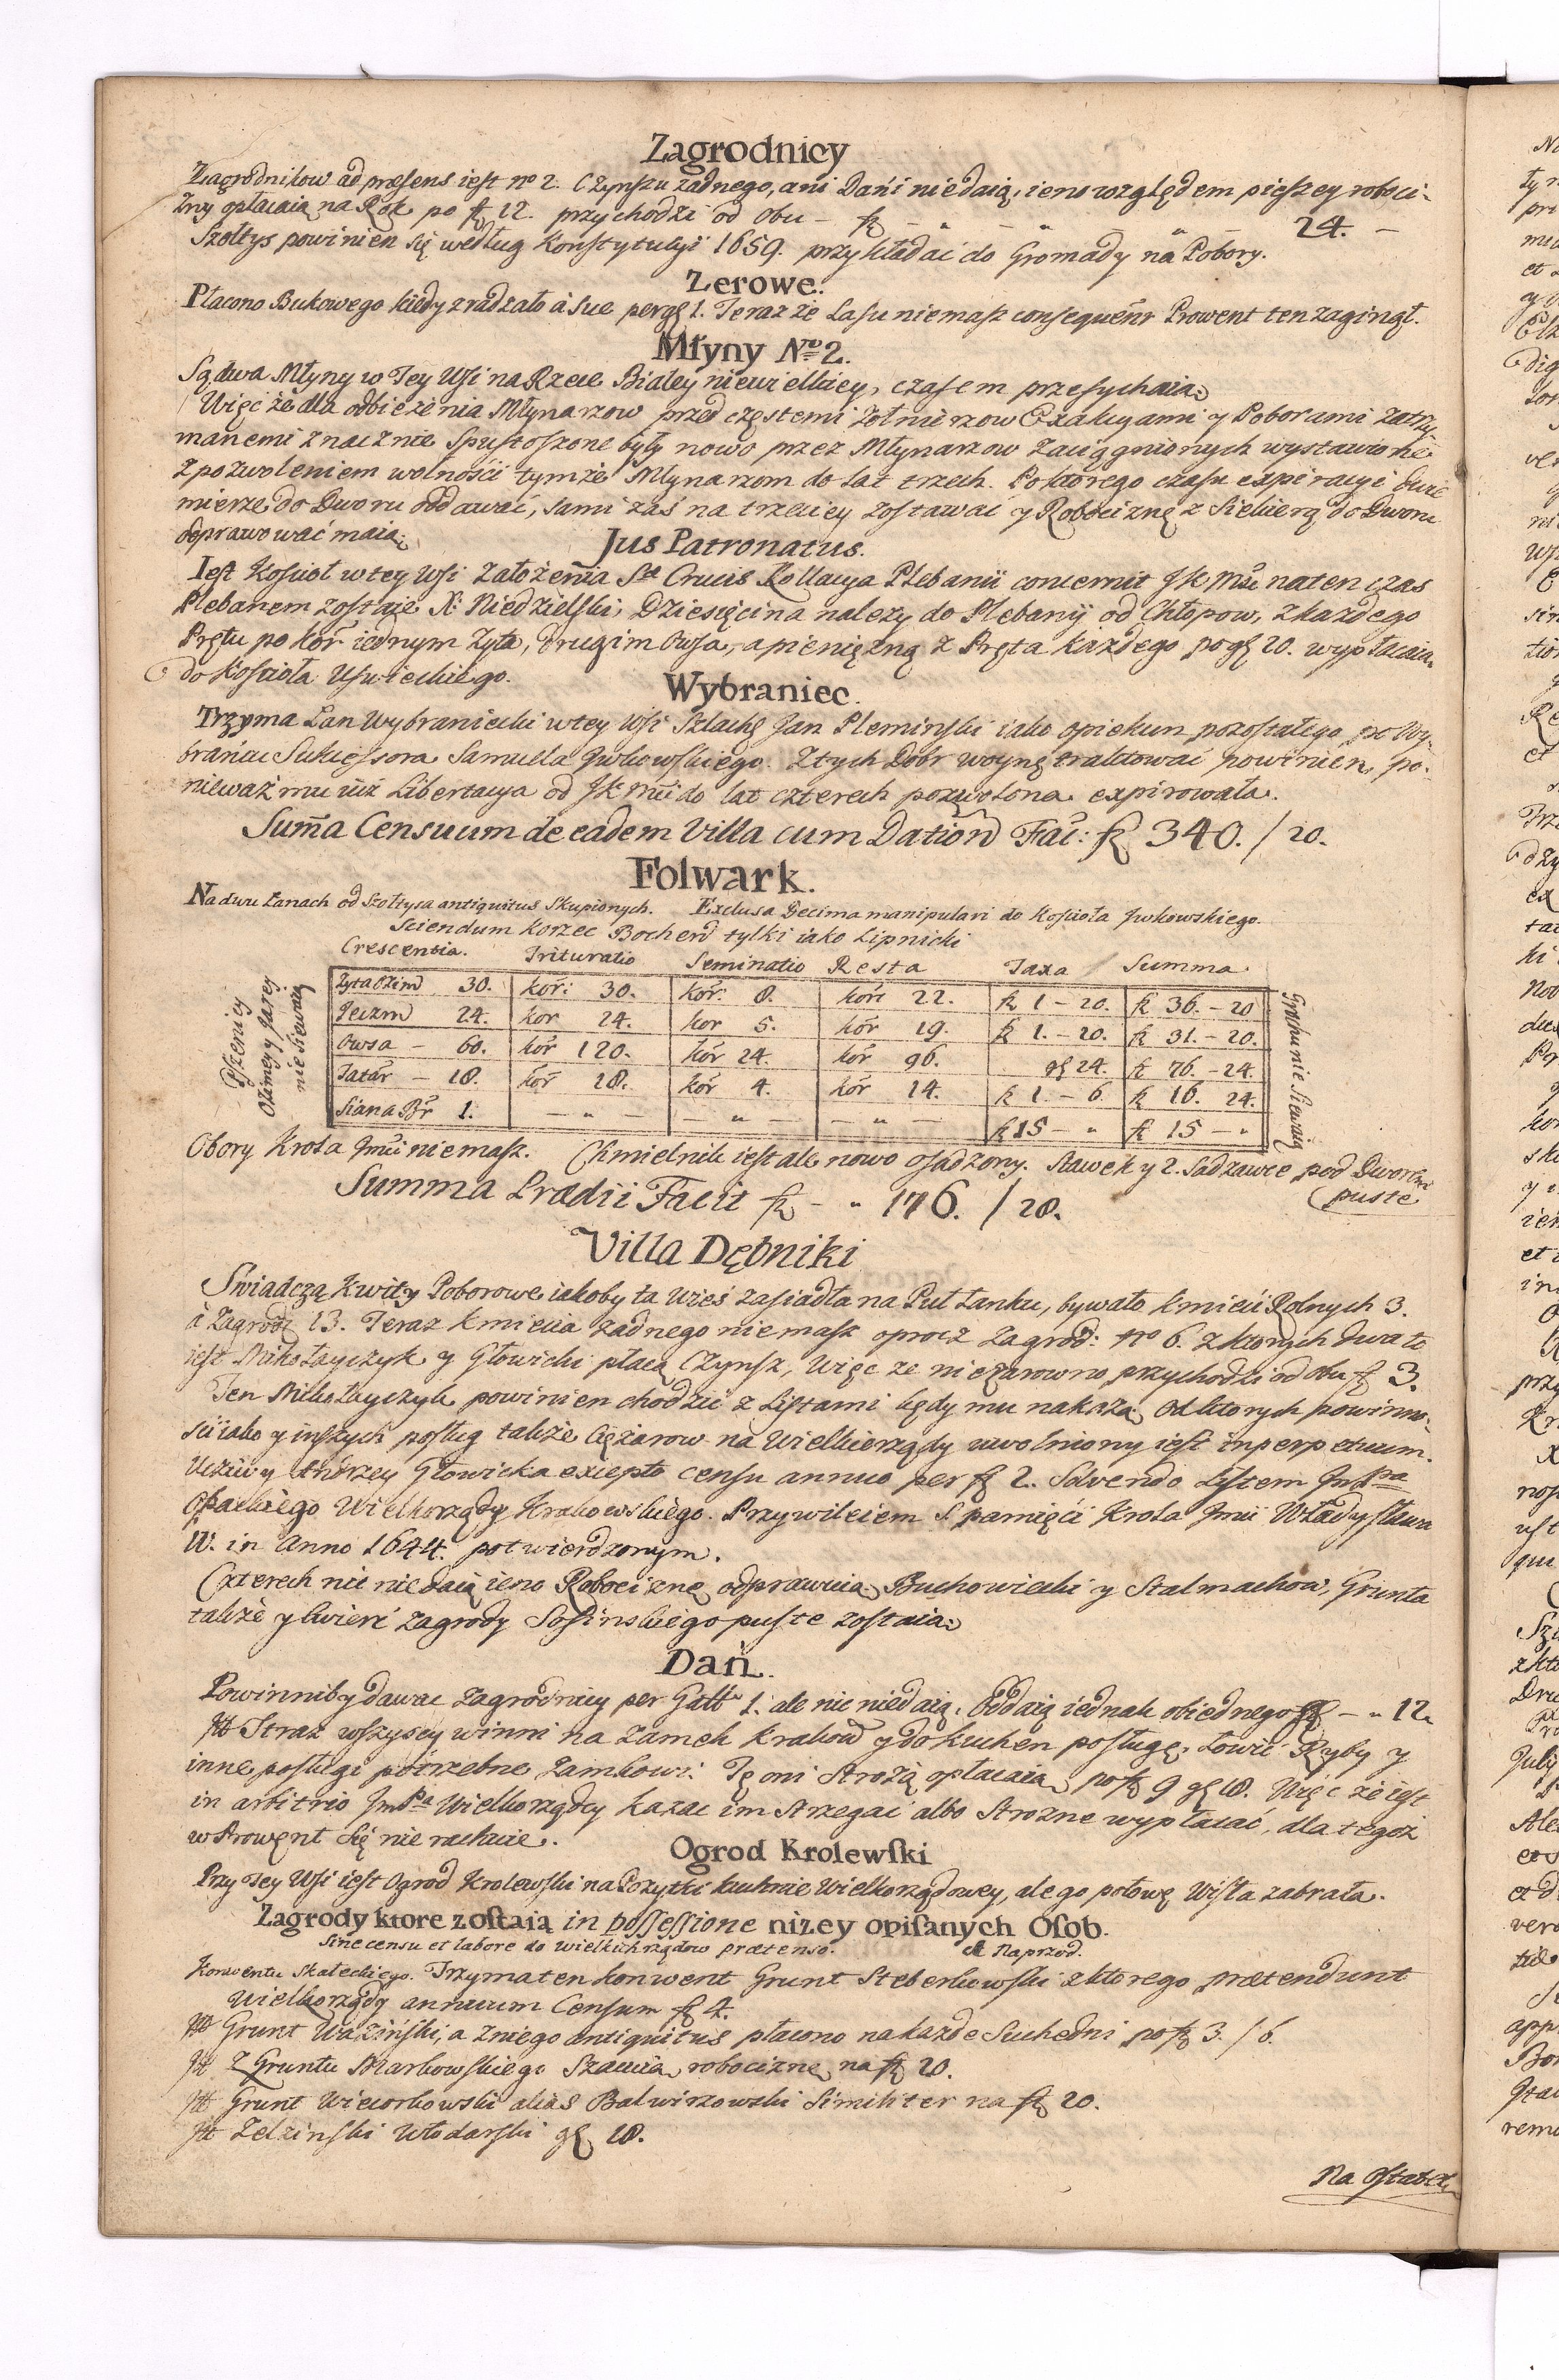 Zagrodnicy
Zagrodnikow ad præsens iest no 2. Czynszu żadnego, ani Dani niedaią, ieno względem pieszey roboci-
zny opłacaią na Rok po fl 12. przychodzi od obu – fl – „ – „ – „ – 24. –
Szołtys powinien się według Konstytucyi 1659. przykładać do Gromady na Pobory.
Zerowe.
Płacono Bukowego kiedy zradzało à Sue per gł 1. Teraz że Lasu niemasz consequent Prowent ten zaginął.
Młyny No 2.
Są dwa Młyny w Tey Wsi na Rzece Białey niewielkiey, czasem przesychaią.
Więc że dla odbieżenia Młynarzow przed częstemi żołnierzow Exakcyami y Poborami zatrzy-
manemi znacznie spustoszone były nowo przez Młynarzow zaciągnionych wystawione
z pozwoleniem wolności tymże Młynarzom do lat trzech. Po ktorego czasu expiracyi dwie
mierze do Dworu oddawać, sami zaś na trzeciey zostawać y Robociznę z Siekierą do Dworu
odprawować maią.
Jus Patronatus.
Iest Kościoł w tey Wsi Założenia Stæ Crucis Kollacya Plebanii concernit JK Mci na ten czas
Plebanem zostaie X: Niedzielski, Dziesięcina należy do Plebanij od Chłopow, z każdego
Prętu po kor iednym Zyta, drugim Owsa, a pieniężną z Pręta każdego po gł 20. wypłacaią
do Kościoła Uswieckiego.
Wybraniec.
Trzyma Łan Wybraniecki w tey Wsi Szlach Jan Pleminski iako opiekun pozostałego po Wy-
brańcu Sukcessora Samuela Jwkowskiego. Z tych Dobr woynę traktować powinien, po-
nieważ mu iuż Libertacya od JK Mci do lat czterech pozwolona expirowała.
Suma Censuum de eadem Villa cum Dation Fac: fl 340. / 20.
Folwark.
Na dwu Łanach od Szołtysa antiquitus skupionych. Exclusa Decima manipulari do Kościoła Jwkowskiego.
Sciendum Korzec Bochen tylki iako Lipnicki
Crescentia. Trituratio Seminatio Resta Taxa Summa.
Pszenicy Ozimey y Jarey nie siewaią
Zyta Ozim 30. kor: 30. kor: 8. kor: 22. fl 1 – 20. fl 36. – 20
Jeczm 24. kor 24. kor 5. kor 19. fl 1. – 20. fl 31. – 20.
Owsa – 60. kor 120. kor 24. kor 96. gł 24. fl 76. – 24.
Tatar – 18. kor 18. kor 4. kor 14. fl 1. – 6. fl 16. 24.
Siana Br 1. – „ – – „ – – „ – fl 15 – „ fl 15 – „
Grochu nie Siewaią
Obory Krola Jmci niemasz. Chmielnik iest ale nowo osadzony. Stawek y 2. Sadzawce pod Dworem
puste
Summa Prædii Facit fl – „ 176. / 28.
Villa Dębniki
Swiadczą Kwity Poborowe iakoby ta Wieś zasiadła na Puł Łanku, bywało kmieci Rolnych 3.
à Zagrod: 13. Teraz kmiecia żadnego niemasz oprocz Zagrod: no 6. z ktorych dwa to
iest Mikołayczyk y Głowicki płacą Czynsz, Więc że nie zarowno przychodzi od obu fl 3.
Ten Mikołayczyk powinien chodzić z Listami kędy mu nakażą Od ktorych powinno-
ści iako y inszych posług także Ciężarow na Wielkierządy uwolniony iest in perpetuum.
Uczciwy Andrzey Głowicka excepto censu annuo per fl 2. Solvendo Listem Jm Pa
Opackiego Wielkorządcy Krakowskiego. Przywileiem S. pamięci Krola Jmci Władysława
IV. in Anno 1644. potwierdzonym.
Czterech nic nie daią ieno Robociznę odprawuią, Buchowiecki y Stalmachow, Grunta
także y ćwierć zagrody Sosinskiego puste zostaią.
Dań.
Powinniby dawać Zagrodnicy per Gall: 1. ale nic niedaią. Oddaią iednak obiednego fl – „ 12.
Itt Straż wszyscy winni na Zamek Krakow y do kuchen posługę, Łowić Ryby y
inne posługi potrzebne Zamkowi. Tę oni Strożą opłacaią po fl 9 gł 18. Więc że iest
in arbitrio Jm Pa Wielkorządcy kazac im strzegać albo Strożne wypłacać, dla tegoż
w Prowęnt się nie rachuie.
Ogrod Krolewski
Przy Tey Wsi iest Ogrod Krolewski na Pożytki kuchnie Wielkorządowey, ale go połowę Wisła zabrała.
Zagrody ktore zostaią in possessione niżey opisanych Osob.
Sine censu et labore do wielkichrządow prætenso. A Naprzod.
Konwentu Skałeckiego. Trzyma ten Konwent Grunt Steberkowski z ktorego prætendunt
Wielkorządy annuum Censum fl 4.
Itt Grunt Wazinski, a z niego antiquitus płacono na każde Suchedni po fl 3. / 6.
Itt Z Gruntu Markowskiego Szacuią robociznę na fl 20.
Itt Grunt Wieczorkowski alias Balwirzowski similiter na fl 20.
Itt Zelzinski Włodarski gł 18.
Na Ostatek